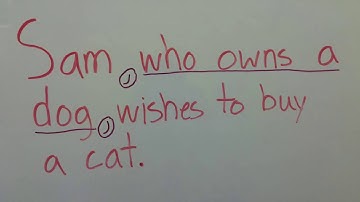 Sam, who owns a
dog, wishes to buy
a cat.